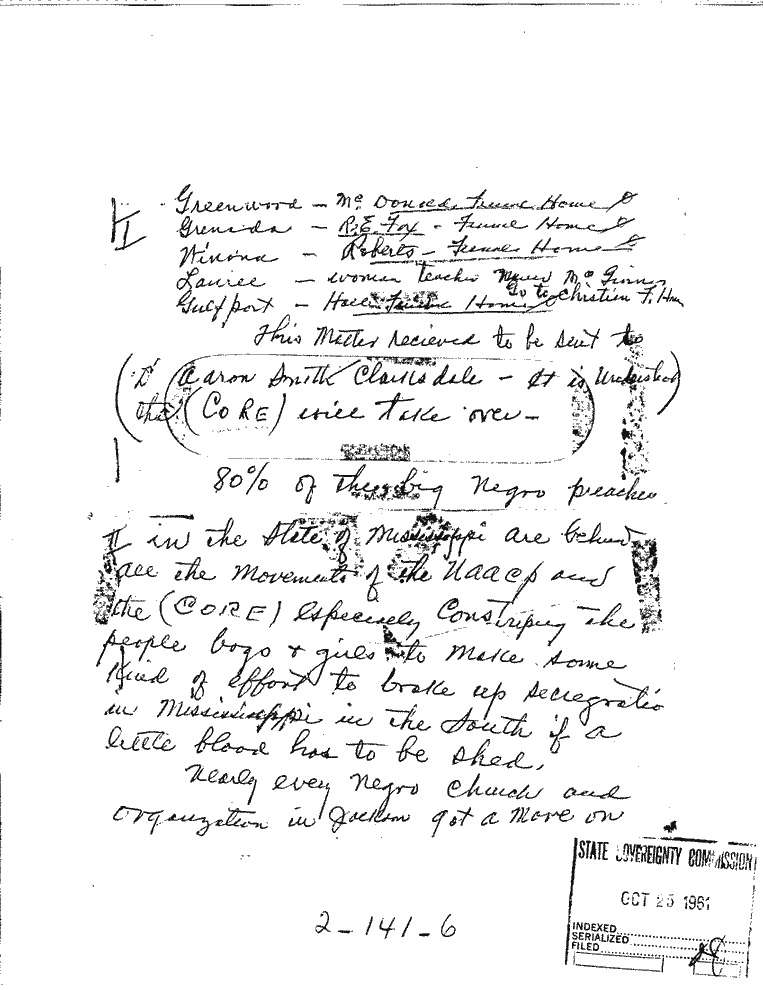 Greenwood - Mc Donald Funeral Home
Grenada - R.E. Fox - Funeral Home
Winona - Roberts - Funeral Home
Laurel - woman teacher Mc
Go to Christian F. Hm
Gulfport - Hall Funeral Home
This Matter recieved to be sent to
Aaron Smith Clarksdale - It is Understood
that (CoRE) will take over -
80% of the big Negro preacher
II in the State of Mississippi are behind
all the Movements of the NAACP and
the (CORE) Especially the
people boys + girls to make some
Kind of effort to brake up secregratio
in Mississippi in the South if a
little blood has to be shed.
Nearly every Negro Church and
organization in Jackson got a Move on
STATE SOVEREIGNTY COMMISSION
OCT 25 1961
INDEXED
SERIALIZED
FILED
2-141-6